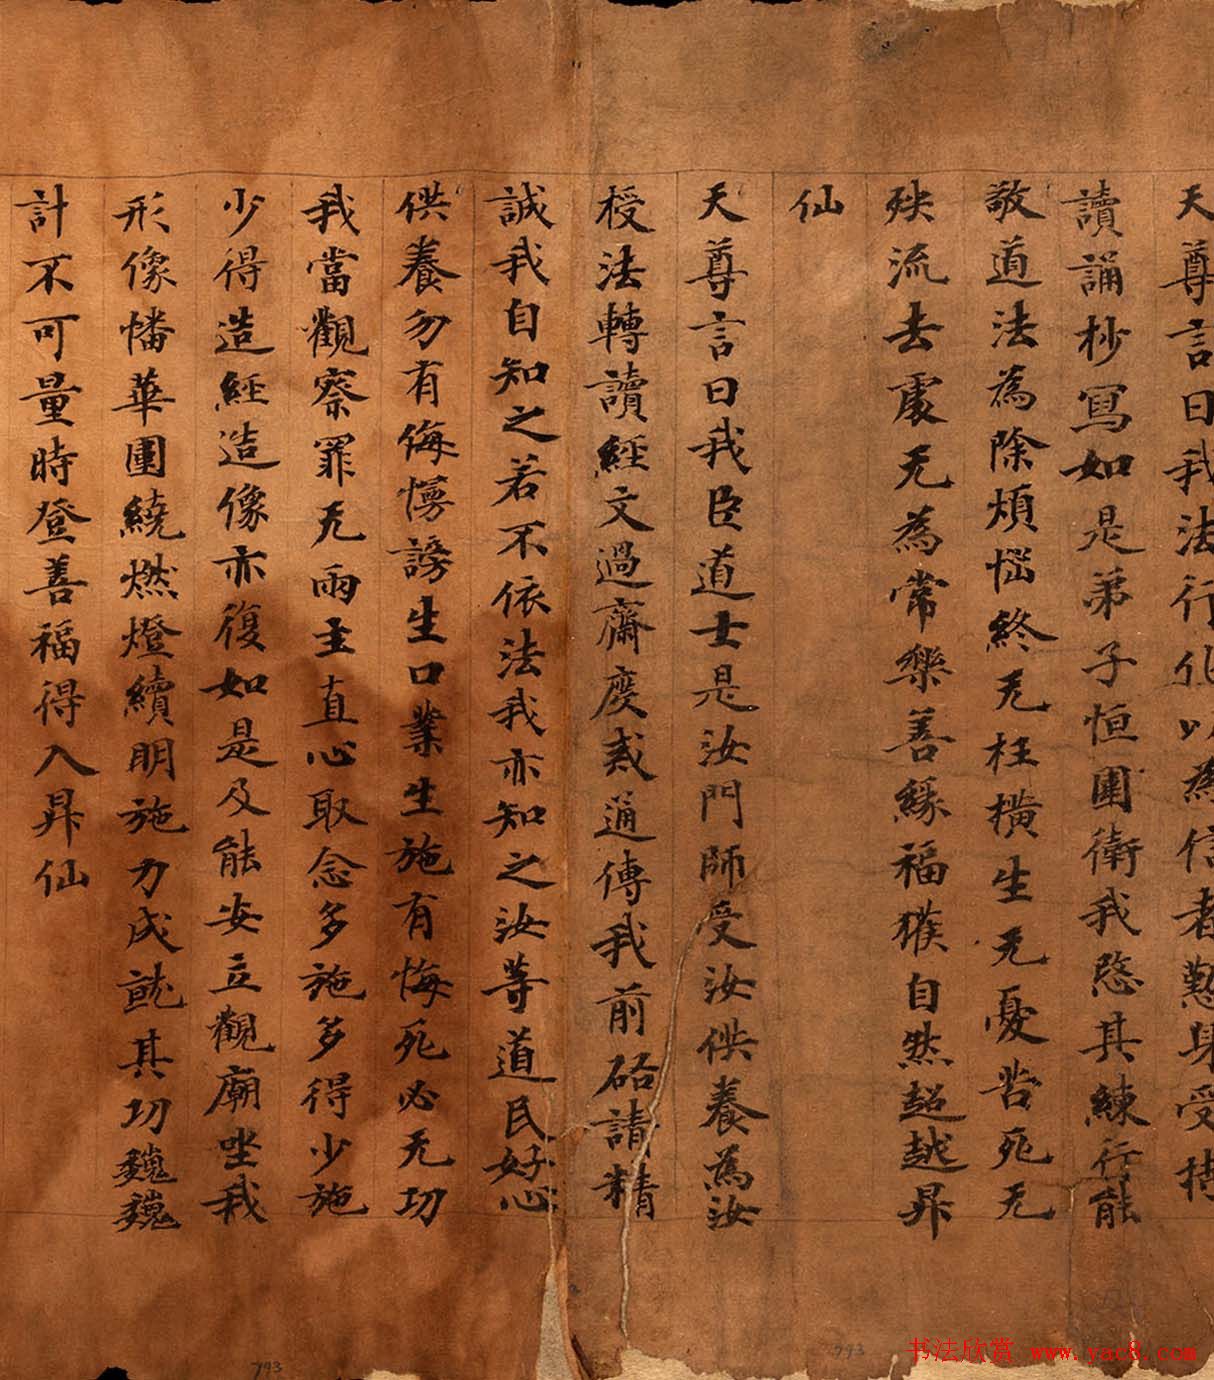 天尊言曰我法行化以為信者懃身受持
讀誦抄寫如是弟子恒圍衛我愍其練行能
敬道法為除煩惱終无枉橫生无憂苦死无
殃流去處无為常樂善緣福獲自然超越昇
仙
天尊言曰我臣道士是汝門師受汝供養為汝
授法轉讀經文過齋度戒通傳我前啓請精
誠我自知之若不依法我亦知之汝等道民好心
供養勿有侮慢謗生口業生施有悔死必无功
我當觀察罪无兩主直心取念多施多得少施
少得造經造像亦復如是及能安立觀廟坐我
形像幡華圍繞燃燈續明施力成就其功巍巍
計不可量時登善福得入昇仙
书法欣赏 www.yac8.com
793
793